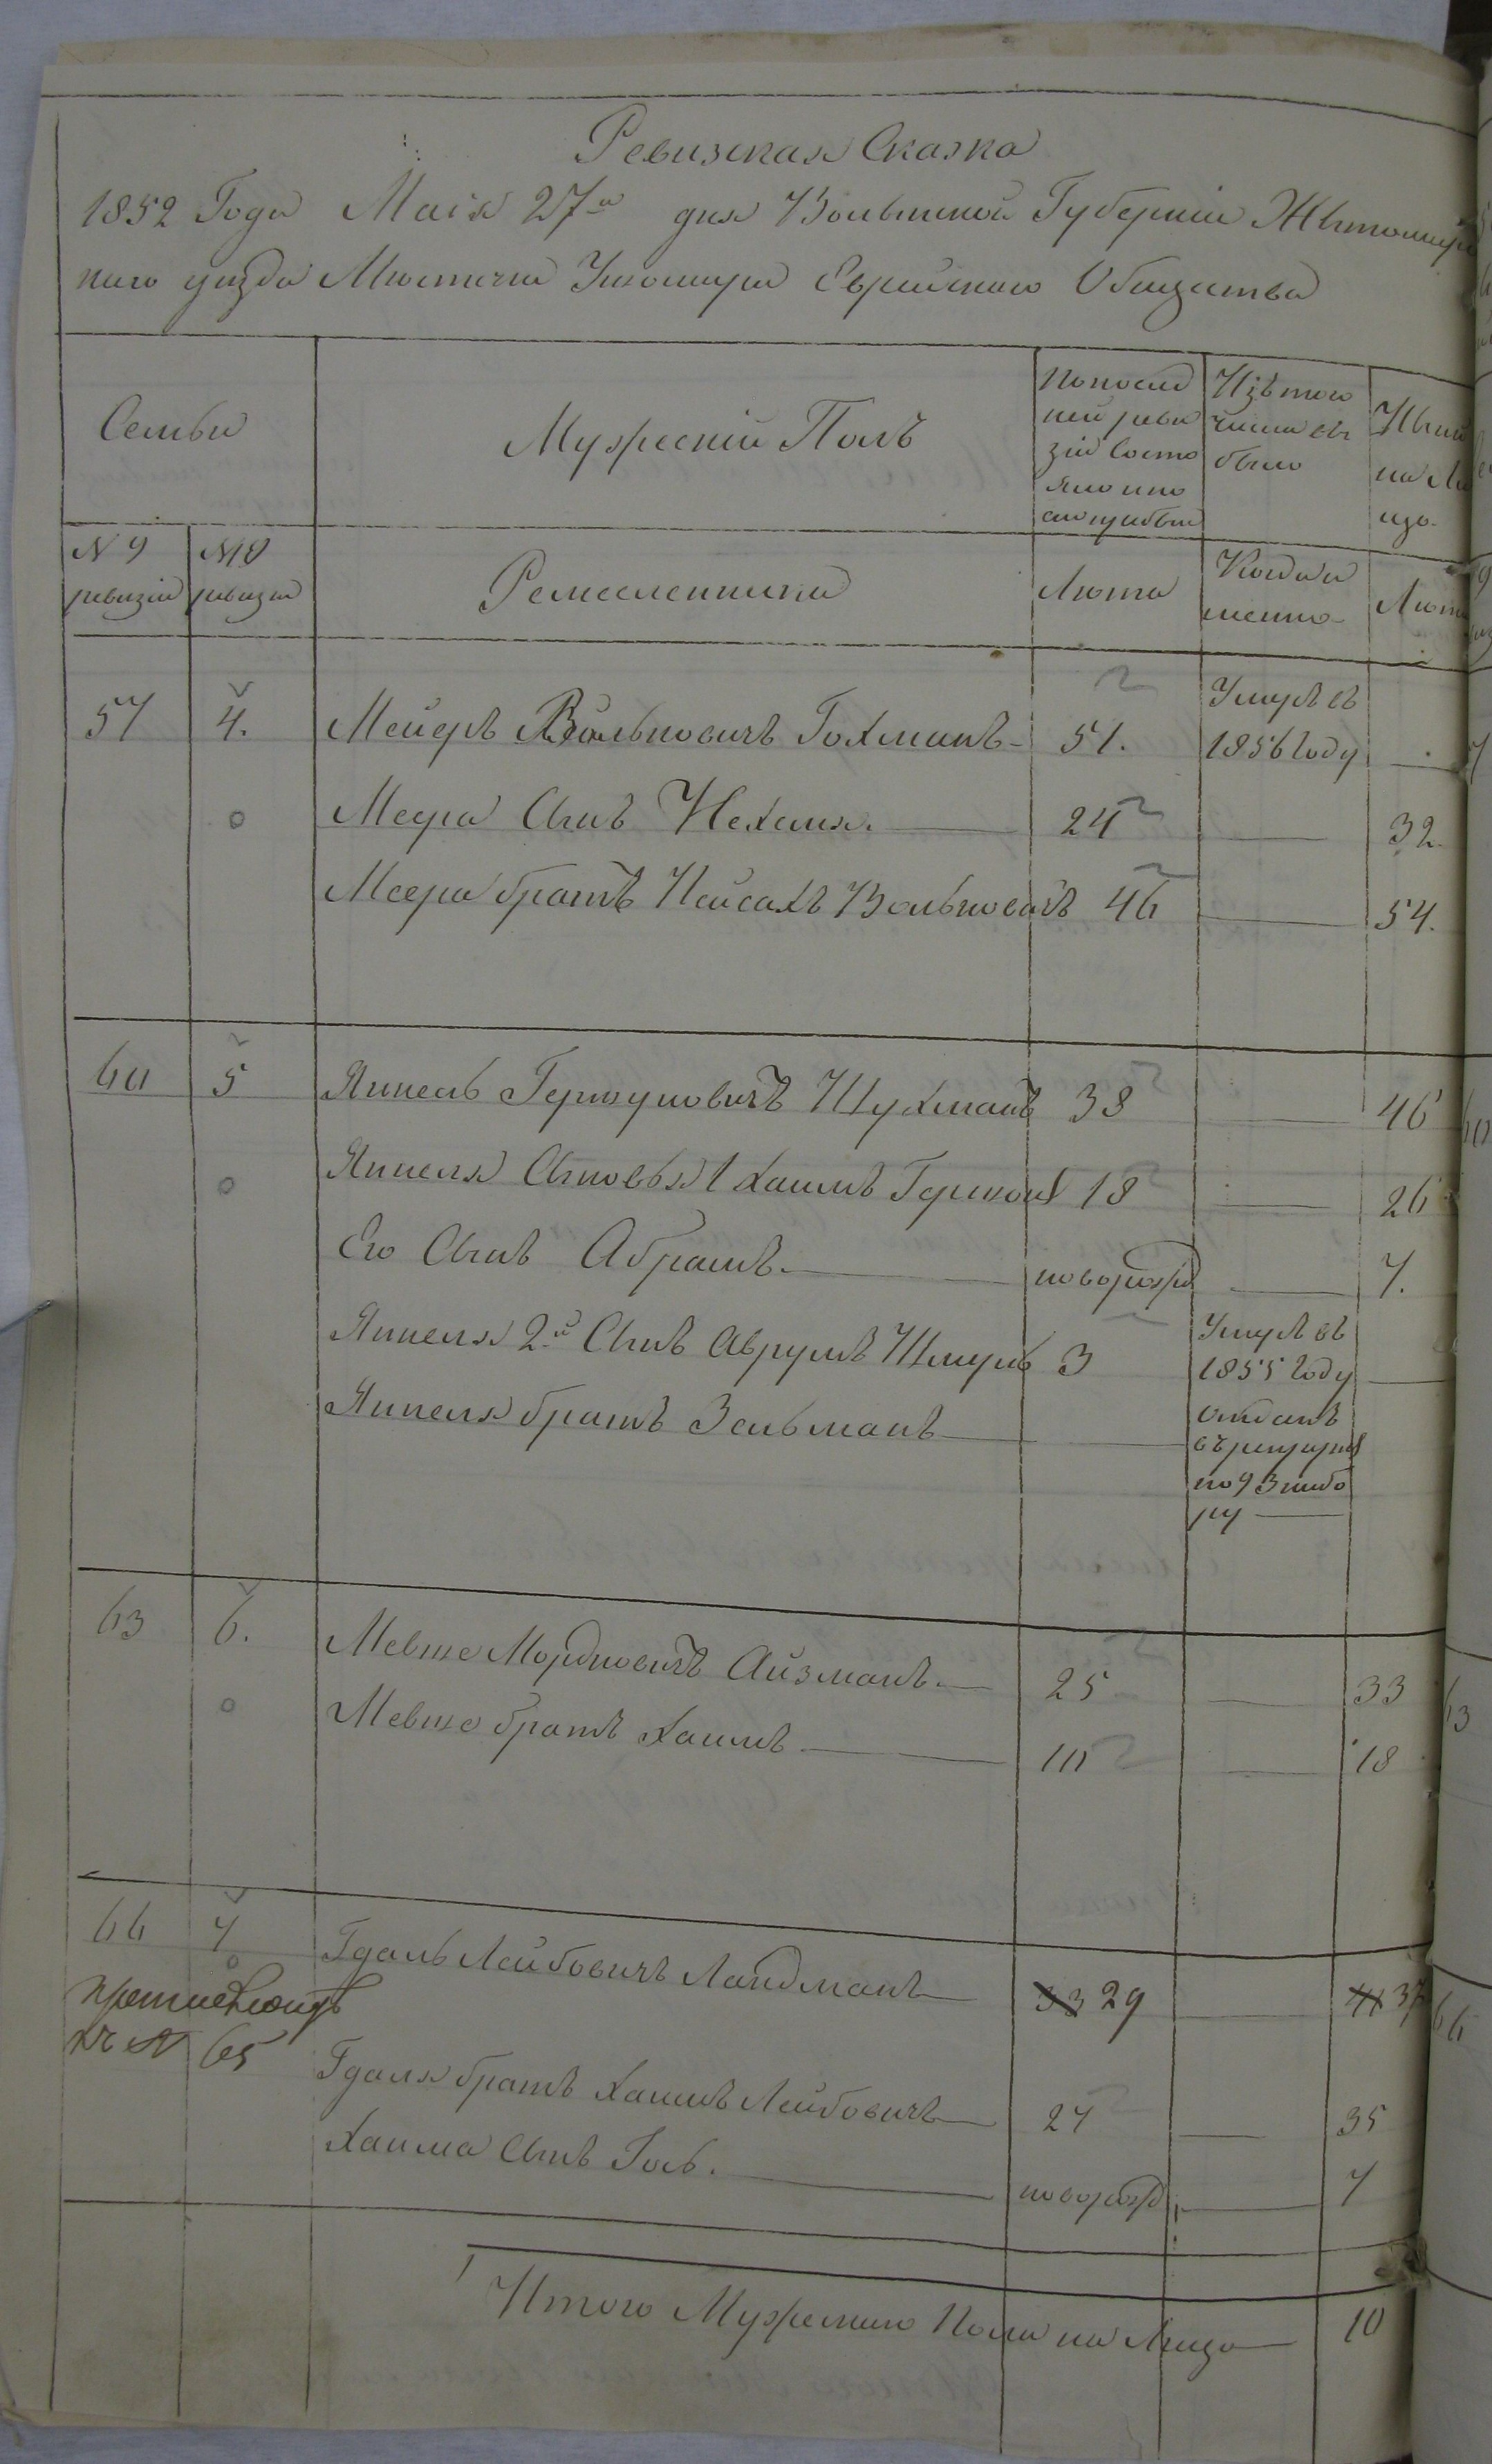 Ревизская Сказка
1852 Года Маія 27го дня Волынской Губерніи Житомирс
каго уѣзда Мѣстечка Ушомира Еврейскаго Общества
Семьи
Мужескій Полъ
По послѣд
ней реви
зіи состо
яло и по
слѣ прибыло
Изъ того
числа вы
было
Нынѣ
на ли
цо.
N 9
ревизіи
N 10
ревизіи
Ремесленники
Лѣта
Когда и
менно
Лѣта
57 4. Мейеръ Вольковичъ Гохманъ 51. Умеръ въ
1856 году
Меера Сынъ Нехемя. 24 32.
Меера братъ Пейсахъ Вольковичъ 46 54.
60 5 Янкель Гершковичъ Шухманъ 38 46
Янкеля Сыновья 1 Хаимъ Гершонъ 18 26
Его Сынъ Абрамъ новорожд 7.
Янкеля 2й Сынъ Аврумъ Шмуль 3 Умеръ въ
1855 году
Янкеля братъ Зельманъ Отданъ
въ рекруты
по 93 набо
ру
63 6. Мевше Мордковичъ Айзманъ 25 33
Мевше братъ Хаимъ 10 18
66 7 Гдаль Лейбовичъ Ландманъ 33 29 41 37
къ N 65
Гдаля братъ Хаимъ Лейбовичъ 27 35
Хаима Сынъ Госъ. новорожд 7
Итого Мужескаго Пола на Лицо 10